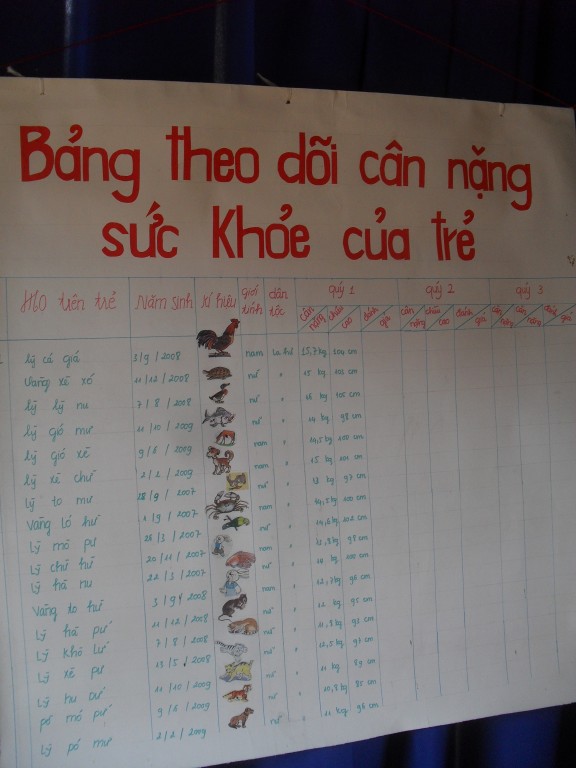 Bảng theo dõi cân nặng
sức khỏe của trẻ
Họ tên trẻ Năm sinh kí hiệu giới tính dân tộc quý 1 quý 2 quý 3
cân nặng chiều cao đánh giá cân nặng chiều cao đánh giá cân nặng chiều cao đánh giá
lỳ cá giá 3/9/2008 nam La hủ 15,7 kg 104 cm
vàng xê xó 11/12/2008 nữ " 15 kg 102 cm
lỳ lỳ nu 7/8/2008 nữ " 16 kg 105 cm
lỳ gió mư 11/10/2009 nữ " 14 kg 98 cm
lỳ gió xê 9/6/2009 nam " 14,5 kg 100 cm
lỳ xê chừ 2/2/2009 nam " 15 kg 101 cm
lỳ to mư 28/9/2007 nữ " 13 kg 97 cm
vàng ló hừ 1/9/2007 " 14,5 kg 100 cm
lỳ mò pư 28/3/2007 " 14,6 kg 102 cm
lỳ chứ hừ 20/11/2007 " 13,8 kg 98 cm
lỳ hà nu 22/3/2007 " 14 kg 100 cm
vàng to hừ 3/9/2008 " 12,7 kg 96 cm
lỳ hà pứ 11/12/2008 " 12 kg 95 cm
lỳ khò lứ 7/8/2008 " 11,8 kg 92 cm
lỳ xê pư 13/5/2008 " 12,5 kg 97 cm
lỳ hu pư 11/10/2009 " 11 kg 89 cm
pờ mò pứ 9/6/2009 " 10,8 kg 85 cm
lỳ pó mư 2/2/2009 nữ " 11 kg 96 cm